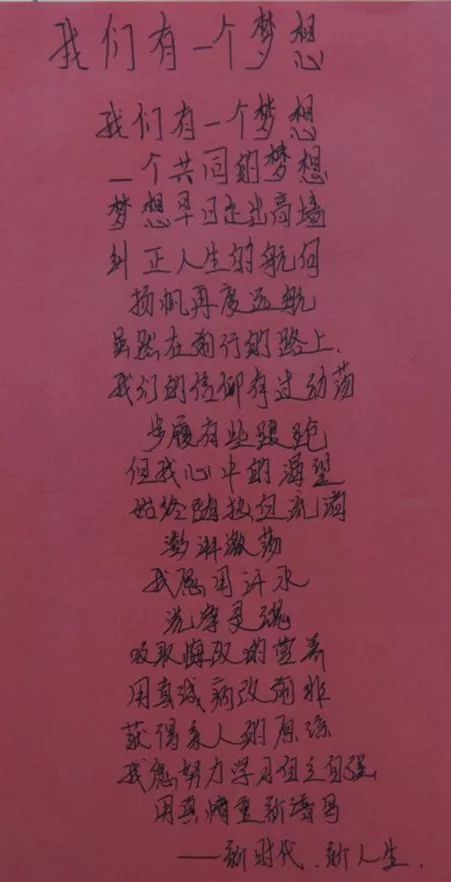 我们有一个梦想
我们有一个梦想
一个共同的梦想
梦想早日走出高墙
纠正人生的航向
扬帆再度远航
虽然在前行的路上.
我们的信仰有过动荡
步履有些踉跄
但我心中的渴望
始终随热血流淌
澎湃激荡
我愿用汗水
洗净灵魂
吸取悔改的营养
用真诚痛改前非
获得亲人的原谅
我愿努力学习自立自强
用真情重新谱写
——新时代.新人生